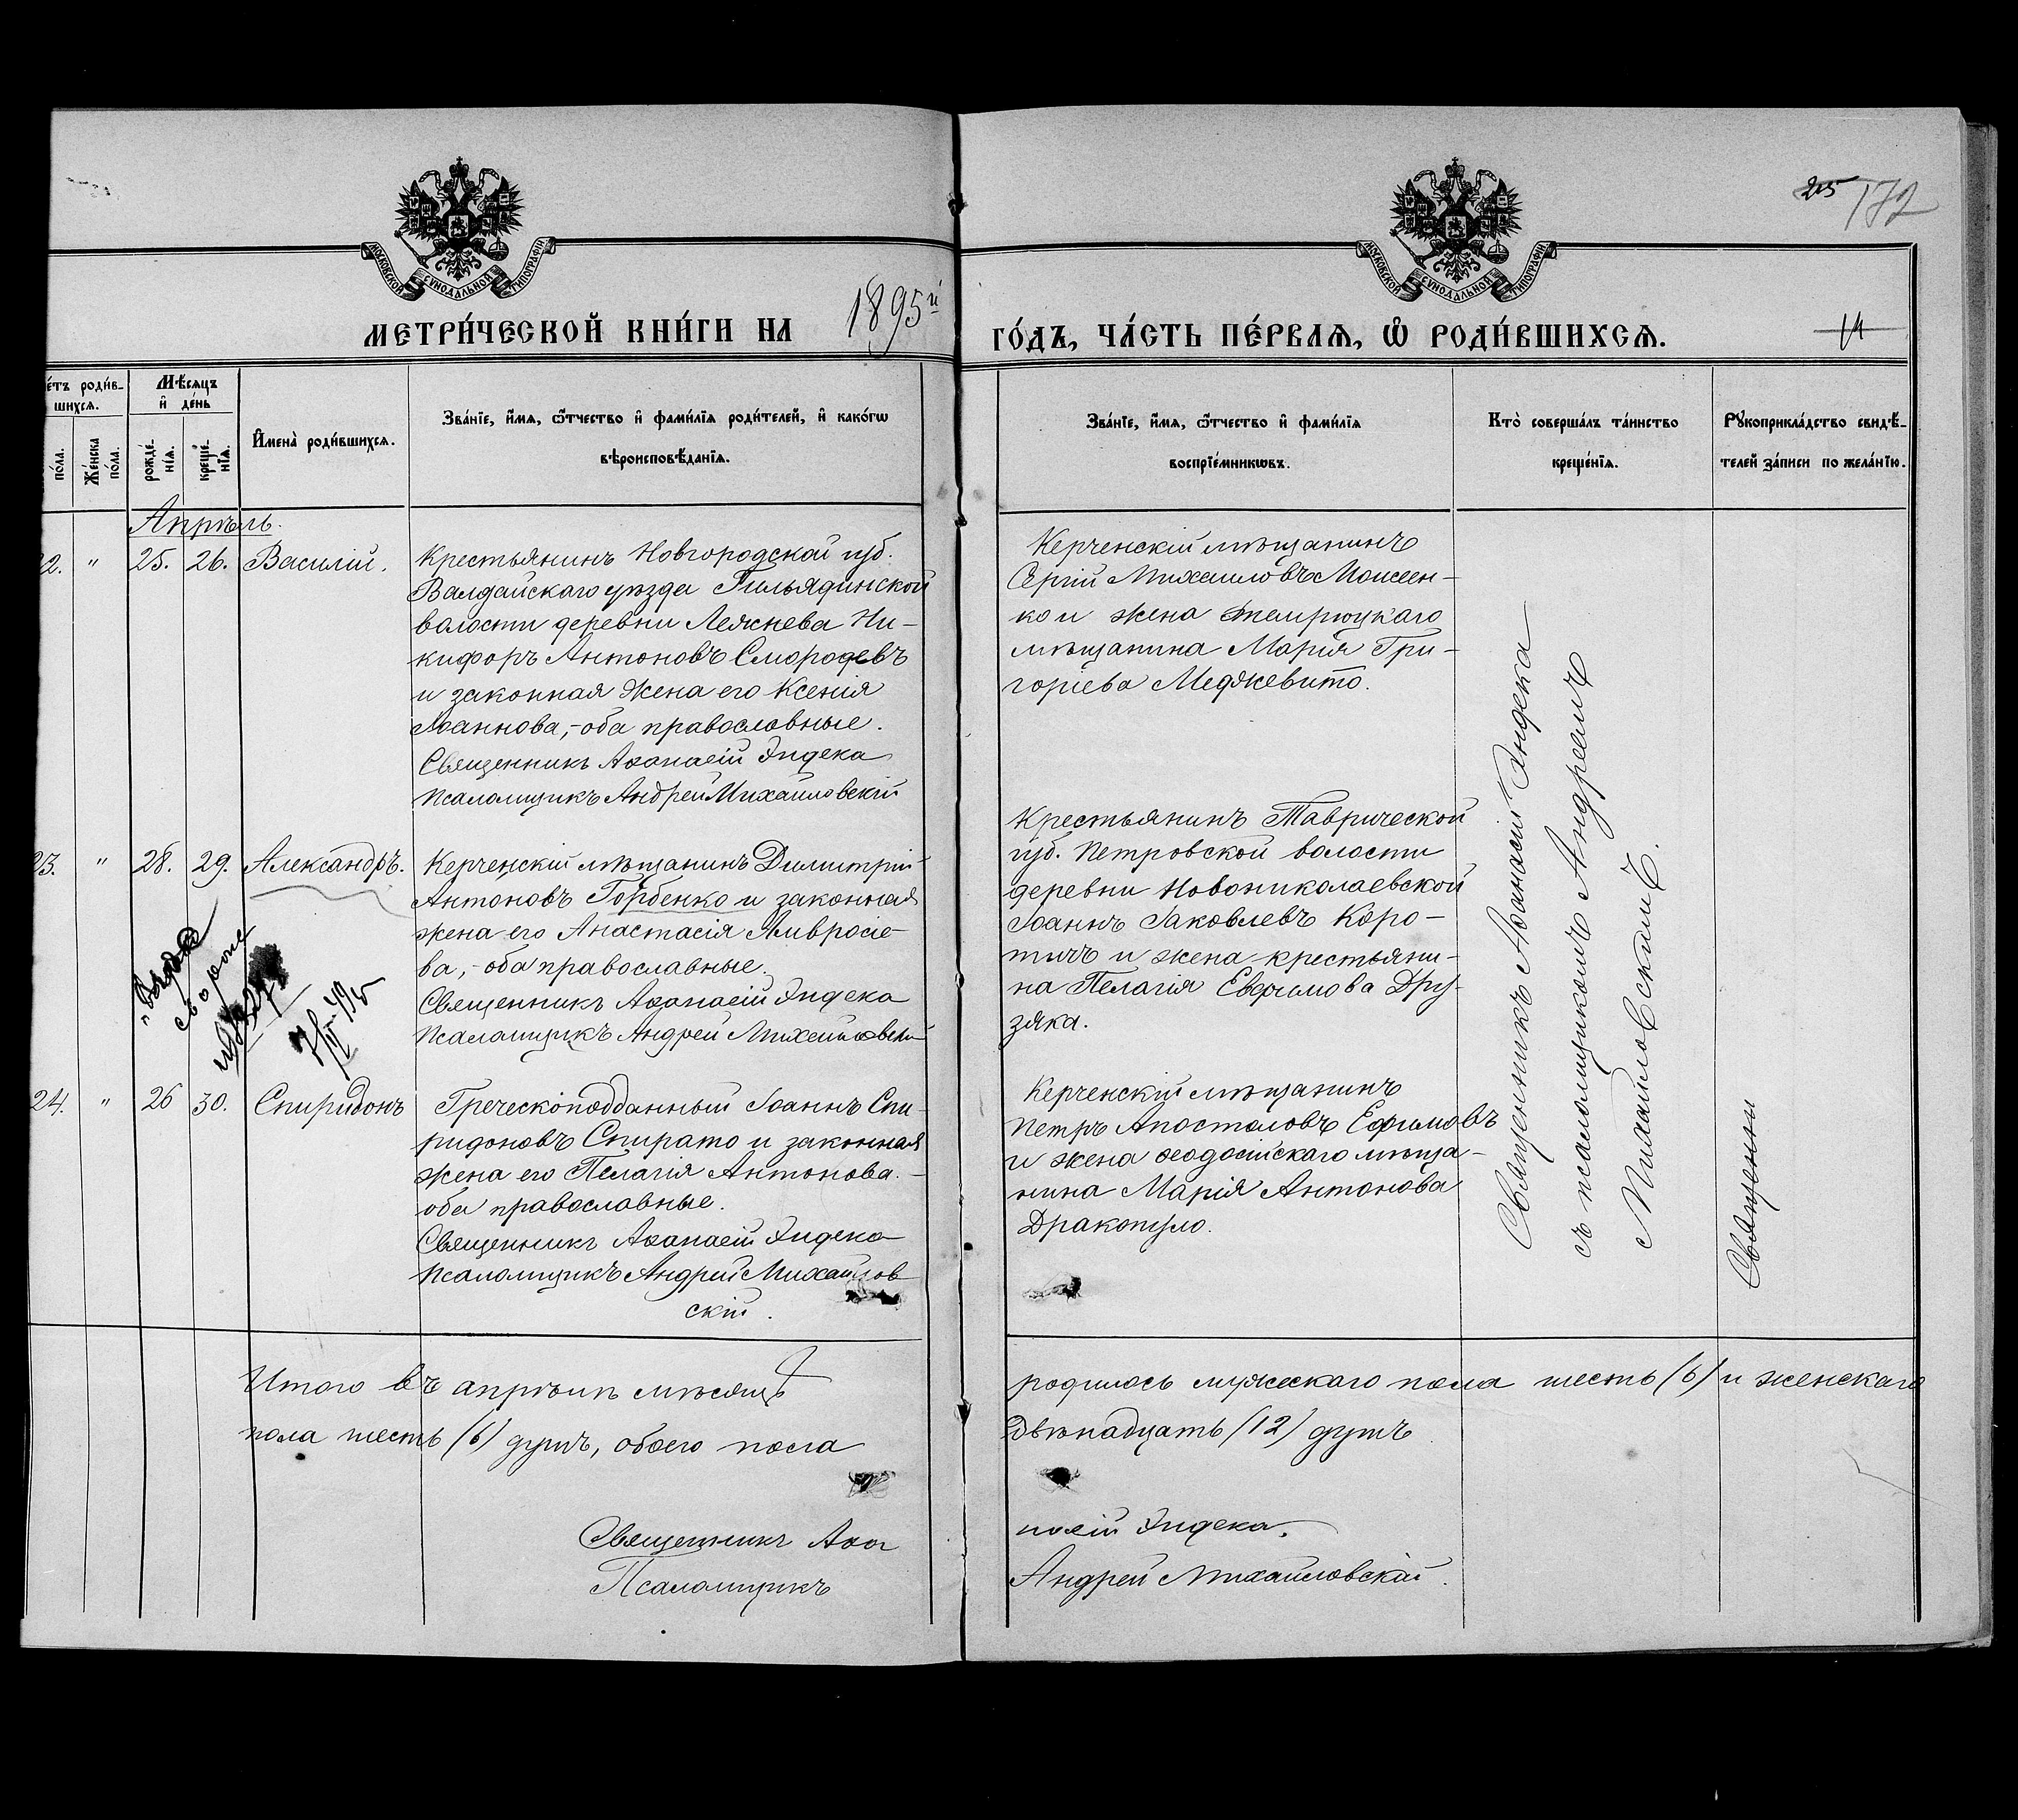 25 172
МОСКОВСКОЙ СѴНОДАЛЬНОЙ ТИПОГРАФІИ
МЕТРИ́ЧЕСКОЙ КНИ́ГИ НА 1895й
14
МОСКОВСКОЙ СѴНОДАЛЬНОЙ ТИПОГРАФІИ
ГО́ДЪ, ЧА́СТЬ ПЕ́РВАѦ, Ѽ РОДИ́ВШИХСѦ.
е́тъ роди́в-
шихсѧ.
по́ла.
Же́нска
по́ла.
Мѣ́сѧцъ
и҆ де́нь
рожде́-
нїѧ.
креще́-
нїѧ.
И҆мена̀ роди́вшихсѧ.
Зва́нїе, и҆́мѧ, ѻ҆́тчество и҆ фами́лїѧ роди́телей, и҆ како́гѡ
вѣроисповѣ́данїѧ.
Зва́нїе, и҆́мѧ, ѻ҆́тчество и҆ фами́лїѧ
воспрїе́мникѡвъ.
Кто̀ соверша́лъ та́инство
креще́нїѧ.
Рꙋкоприкла́дство свидѣ́-
телей за́писи по жела́нїю.
Апрѣль.
2. " 25. 26. Василій.
Крестьянинъ Новгородской губ.
Валдайскаго уѣзда
волости деревни Лежнева Ни-
кифоръ Антоновъ Смородевъ
и законная жена его Ксенія
Іоаннова,-оба православные.
Священникъ Аѳанасій Эндека
Псаломщикъ Андрей Михайловскій
Керченскій мѣщанинъ
Сергій Михаиловъ Моисеен-
ко и жена темрюцкаго
мѣщанина Марія Гри-
горіева Меджевито.
23. " 28. 29. Александръ.
Керченскій мѣщанинъ Димитрій
Антоновъ Горбенко и законная
жена его Анастасія Амвросіе-
ва,-оба православные.
Священникъ Аѳанасій Эндека
Псаломщикъ Андрей Михайловскій
Крестьянинъ Таврической
губ. Петровской волости
деревни Новониколаевской
Іоаннъ Іаковлевъ Коро-
тичъ и жена крестьяни-
на Пелагія Евѳимова Дру-
зяка.
24. " 26 30. Спиридонъ
Греческоподданный Іоаннъ Спи-
ридоновъ Спирато и законная
жена его Пелагія Антонова.-
оба православные.
Священникъ Аѳанасій Эндека
Псаломщикъ Андрей Михайлов
скій.
Керченскій мѣщанинъ
Петръ Апостоловъ Ефимовъ
и жена ѳеодосійскаго мѣща-
нина Марія Антонова
Дракопуло.
Священникъ Аѳанасій Эндека
съ псаломщикомъ Андреемъ
Михайловскимъ.
Священни
Итого въ апрѣлѣ мѣсяцѣ родилось мужескаго пола шесть (6) и женскаго
пола шесть (6) душъ, обоего пола двѣнадцать (12) душъ
Священникъ Аѳанасій Эндека.
Псаломщикъ Андрей Михайловскій.